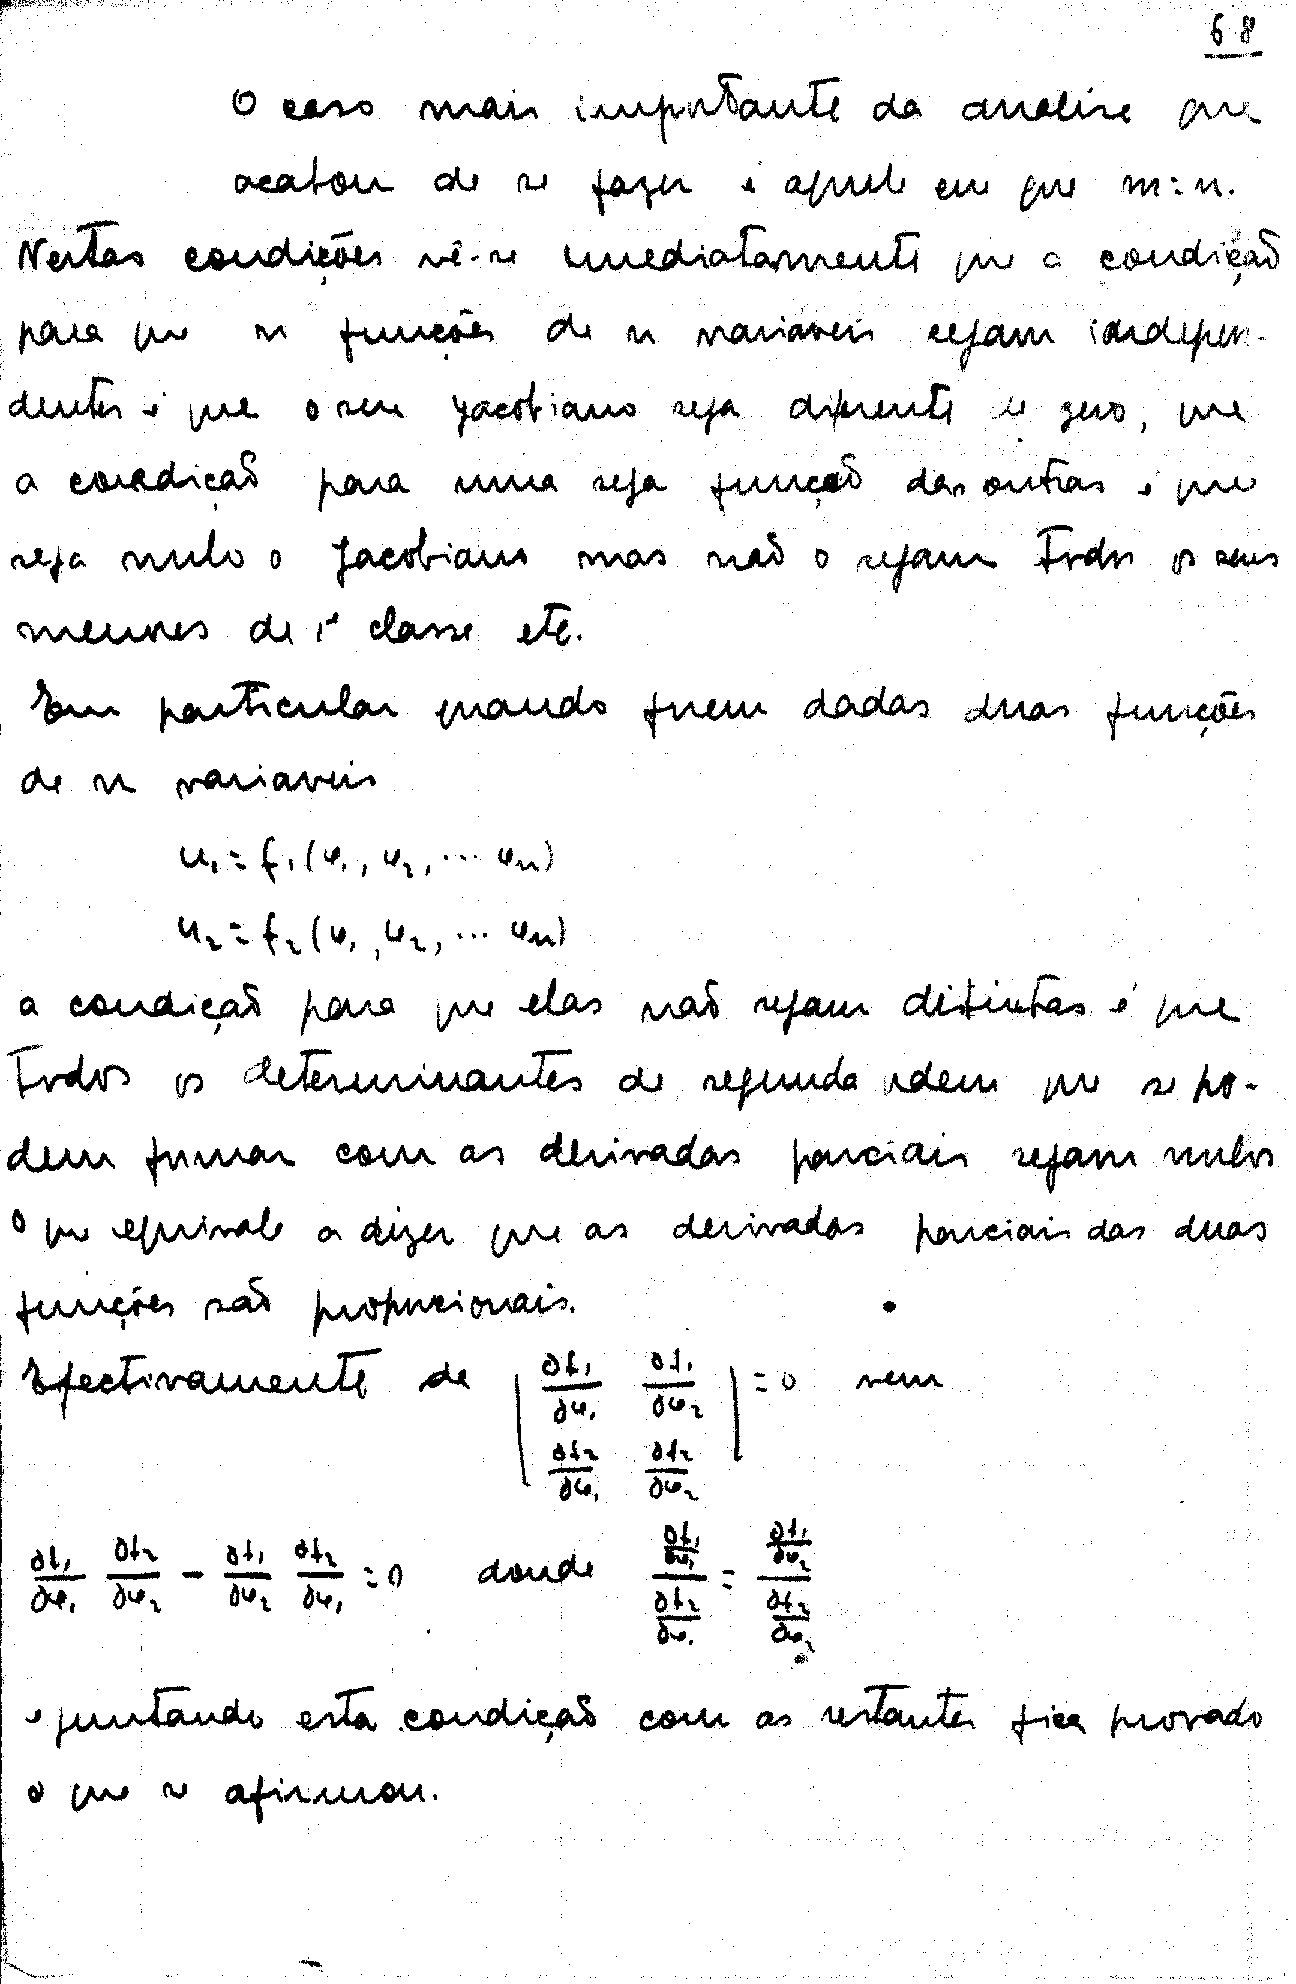 68
O caso mais importante da analise que
acabou de se fazer é aquele em que m=n.
Nestas condições vê-se imediatamente que a condição
para que n funções de n variaveis sejam indepen-
dentes é que o seu jacobiano seja diferente de zero, que
a condição para uma seja função das outras é que
seja nulo o Jacobiano mas não o sejam todos os seus
menores de 1ª classe etc.
Em particular quando forem dadas duas funções
de n variaveis
u₁ = f₁(φ₁, φ₂, ... φn)
u₂ = f₂(φ₁, φ₂, ... φn)
a condição para que elas não sejam distintas é que
todos os determinantes de segunda ordem que se po-
dem formar com as derivadas parciais sejam nulos
o que equivale a dizer que as derivadas parciais das duas
funções são proporcionais.
Efectivamente de | ∂f₁/∂φ₁ ∂f₁/∂φ₂ ; ∂f₂/∂φ₁ ∂f₂/∂φ₂ | = 0 vem
∂f₁/∂φ₁ ∂f₂/∂φ₂ − ∂f₁/∂φ₂ ∂f₂/∂φ₁ = 0 donde (∂f₁/∂φ₁)/(∂f₂/∂φ₁) = (∂f₁/∂φ₂)/(∂f₂/∂φ₂)
e juntando esta condição com as restantes fica provado
o que se afirmou.